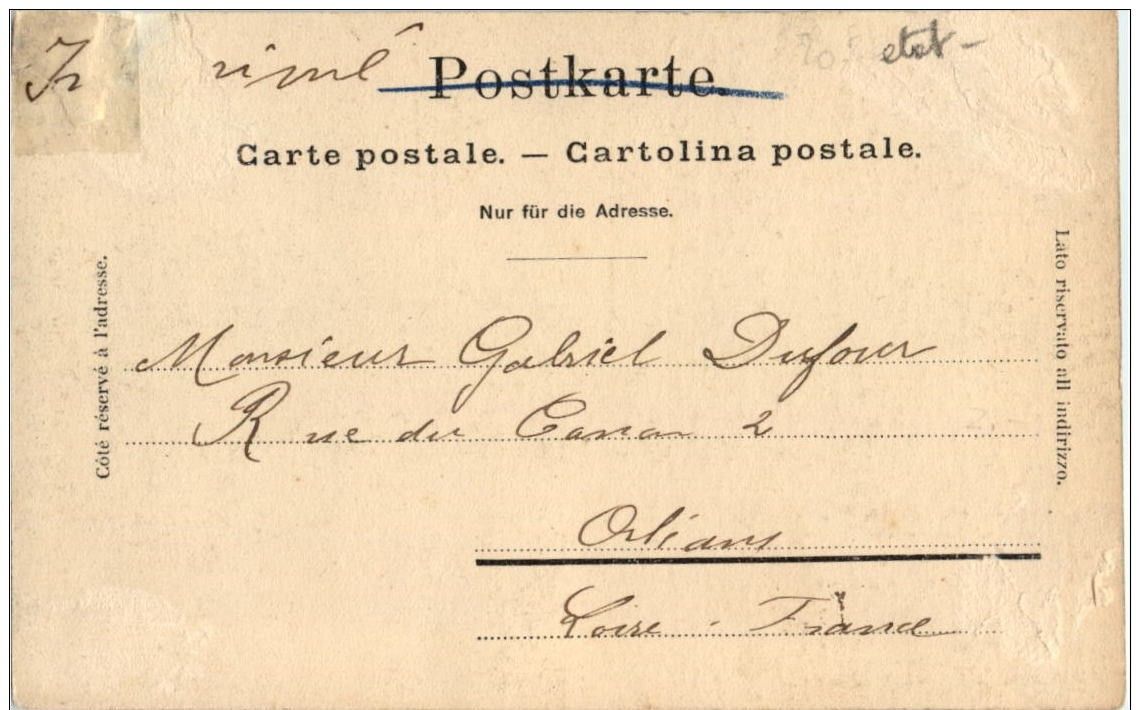 Postkarte.
etat -
Carte postale. — Cartolina postale.
Nur für die Adresse.
Côté réservé à l'adresse.
Lato riservato all indirizzo.
Monsieur Gabriel Dufour
Rue du Canon 2
Orléans
Loire. France